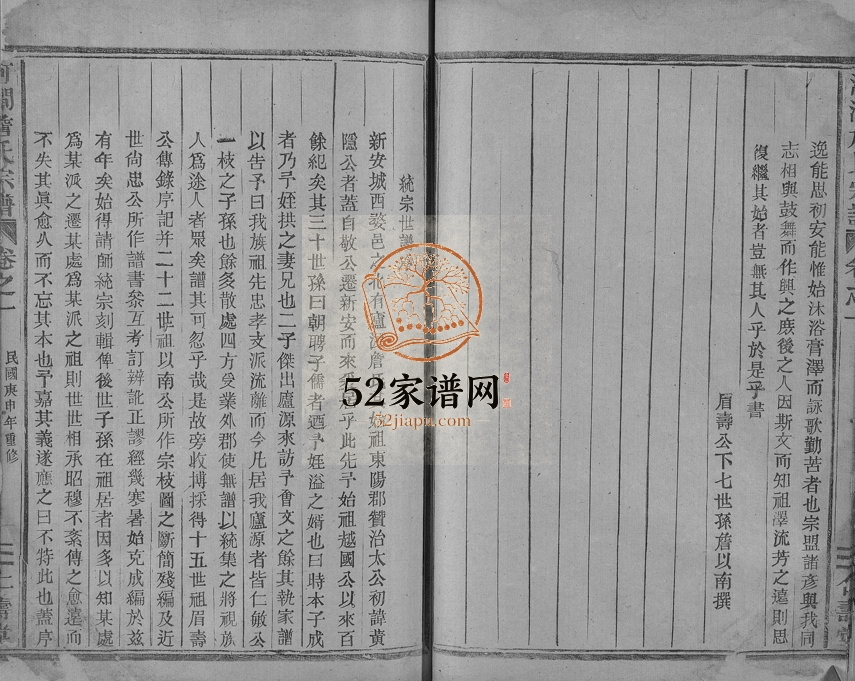 逸能思初安能惟始沐浴膏澤而詠歌勤苦者也宗盟諸彥與我同
志相與鼓舞而作興之庻後之人因斯文而知祖澤流芳之遠則思
復繼其始者豈無其人乎於是乎書
眉壽公下七世孫詹以南撰
統宗世譜
新安城西婺邑之北有廬江詹 始祖東陽郡贊治太公初諱黃
隱公者蓋自敬公遷新安而來 乎此先予始祖越國公以來百
餘紀矣其三十世孫曰朝聘子儒者迺予姪溢之婿也曰時本子成
者乃予姪拱之妻兄也二子傑出廬源來訪予會文之餘其執家譜
以吿予曰我族祖先忠孝支派流離而今凡居我廬源者皆仁敏公
一枝之子孫也餘多散處四方受業外郡使無譜以統集之將視族
人爲途人者眾矣譜其可忽乎哉是故旁收博採得十五世祖眉壽
公傳錄序記并二十二世祖以南公所作宗枝圖之斷簡殘編及近
世尙忠公所作譜書叅互考訂辨訛正謬經幾寒暑始克成編於兹
有年矣始得請師統宗刻輯俾後世子孫在祖居者因多以知某處
爲某派之遷某處爲某派之祖則世世相承昭穆不紊傳之愈遠而
不失其眞愈久而不忘其本也予嘉其義遂應之曰不特此也蓋序
詹氏宗譜
卷之一
民國庚申年重修
壽堂
52家谱网
52jiapu.com